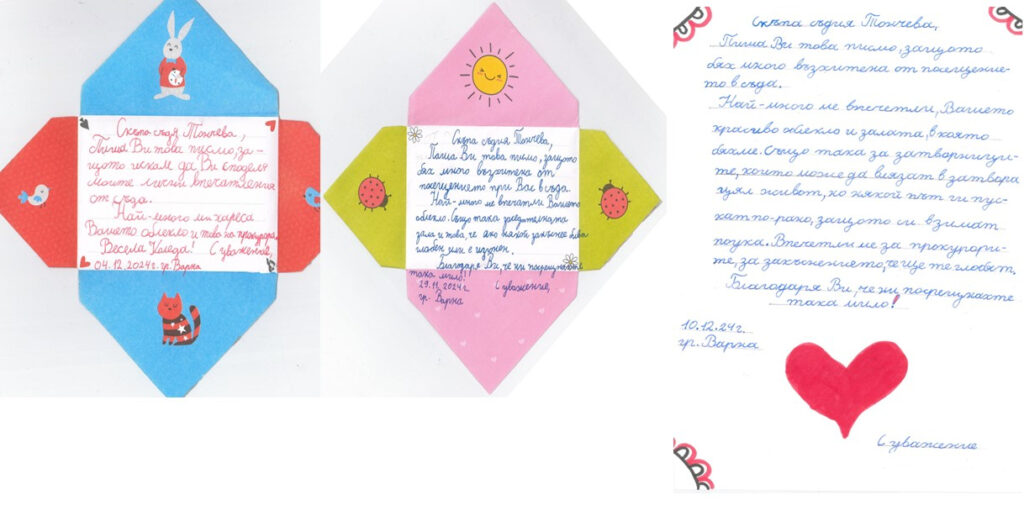 Скъпа съдя Тончева,
Пиша Ви това писмо, за-
щото искам да Ви споделя
моите лични впечатления
от съда.
Най-много ми хареса
Вашето облекло и това на прокурора.
Весела Коледа! С уважение,
04.12.2024г. гр. Варна
Скъпа съдия Тончева,
Пиша Ви това писмо, защото
бях много възхитена от
посещението при Вас в съда.
Най-много ме впечатли Вашето
облекло. Също така заседателната
зала и това, че ако някой закъснее бива
глобен или е изгонен.
Благодаря Ви, че ни посрещнахте
така мило!!!
29.11.2024г. С уважение,
гр. Варна
Скъпа съдия Тончева,
Пиша Ви това писмо, защото
бях много възхитена от посещение-
то в съда.
Най-много ме впечатли, Вашето
красиво облекло и залата, в която
бяхме. Също така за затворници-
те, които може да влязат в затвора
цял живот, но някой път ги пус-
кат по-рано, защото си взимат
поука. Впечатли ме за прокурори-
те, за закъснението, че ще те глобят.
Благодаря Ви, че ни посрещнахте
така мило!
10.12.24г.
гр. Варна
С уважение